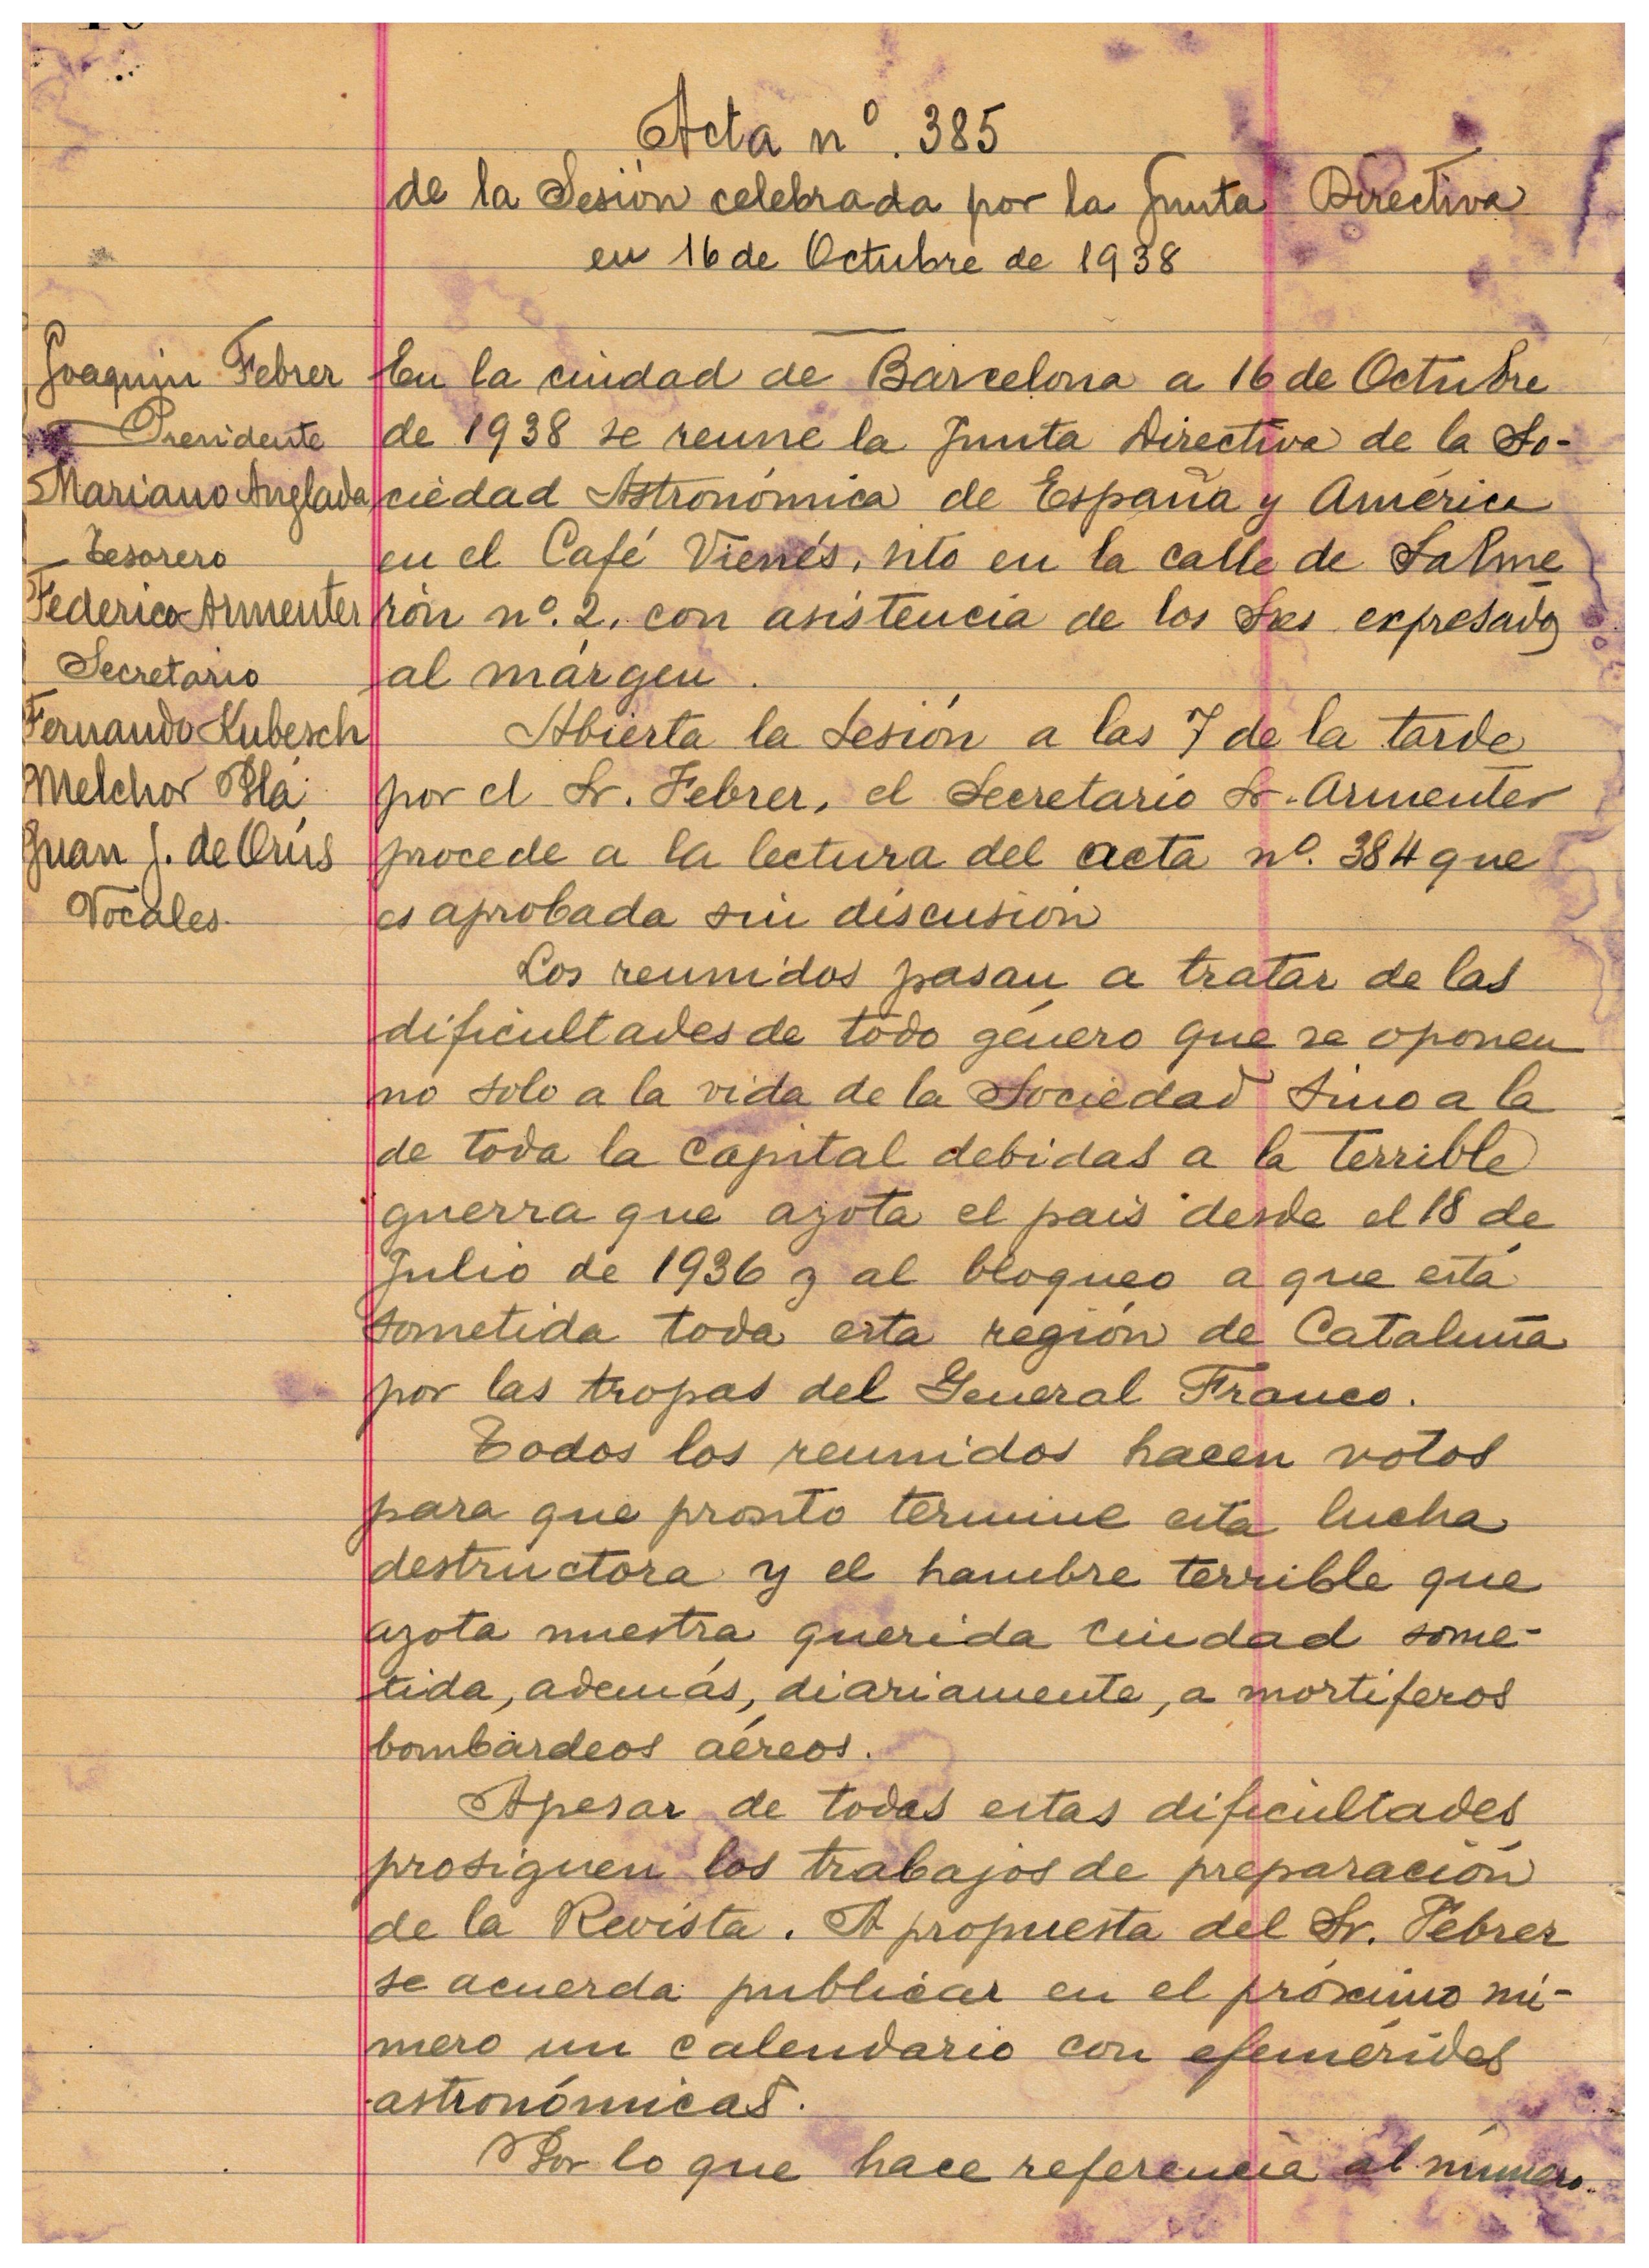 Acta nº. 385
de la Sesión celebrada por la Junta Directiva
en 16 de Octubre de 1938
Joaquin Febrer
Presidente
Mariano Anglada
Tesorero
Federico Armenter
Secretario
Fernando Kubesch
Melchor Plá
Juan J. de Orús
Vocales.
En la ciudad de Barcelona a 16 de Octubre
de 1938 se reune la Junta Directiva de la So-
ciedad Astronómica de España y América
en el Café Vienés, sito en la calle de Salme
rón nº. 2, con asistencia de los Srs expresados
al márgen.
Abierta la Sesión a las 7 de la tarde
por el Sr. Febrer, el Secretario Sr. Armenter
procede a la lectura del acta nº. 384 que
es aprobada sin discusión
Los reunidos pasan a tratar de las
dificultades de todo género que se oponen
no solo a la vida de la Sociedad sino a la
de toda la capital debidas a la terrible
guerra que azota el pais desde el 18 de
Julio de 1936 y al bloqueo a que está
sometida toda esta región de Cataluña
por las tropas del General Franco.
Todos los reunidos hacen votos
para que pronto termine esta lucha
destructora y el hambre terrible que
azota nuestra querida ciudad some-
tida, además, diariamente, a mortiferos
bombardeos aéreos.
Apesar de todas estas dificultades
prosiguen los trabajos de preparación
de la Revista. A propuesta del Sr. Febrer
se acuerda publicar en el próximo nú-
mero un calendario con efemérides
astronómicas.
Por lo que hace referencia al número